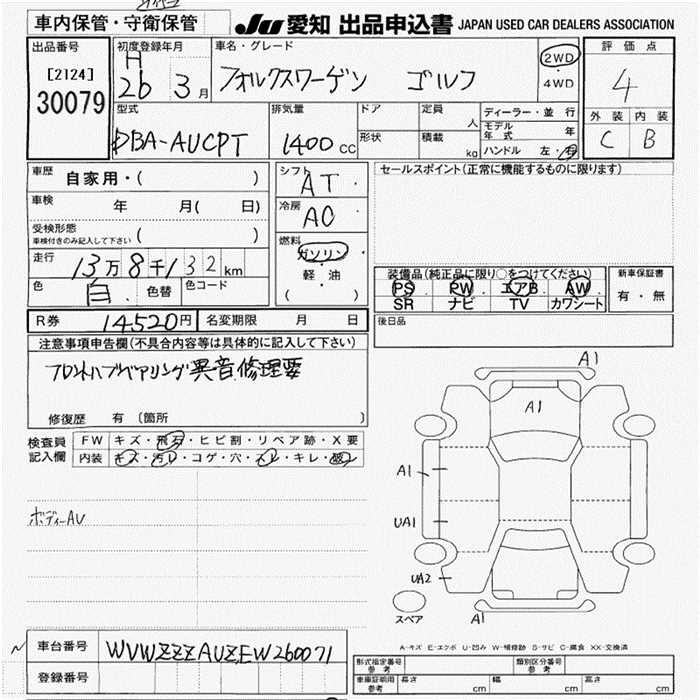 車内保管・守衛保管
JU 愛知 出品申込書 JAPAN USED CAR DEALERS ASSOCIATION
出品番号
[2124]
30079
初度登録年月
H
26 3月
車名・グレード
フォルクスワーゲン ゴルフ
2WD
・
4WD
評価点
4
外装 内装
C B
型式
DBA-AUCPT
排気量
1400 CC
ドア
形状
定員
人
積載
kg
ディーラー・並行
モデル年式 年
ハンドル 左・右
車歴 自家用・( )
車検 年 月( 日)
受検形態
車検付きのみ記入して下さい ( )
走行 13万8千132km
色 白 ・ 色替 色コード
シフト
AT ・
冷房
AC
燃料
ガソリン
・
軽・油
( )
セールスポイント(正常に機能するものに限ります)
装備品(純正品に限り○をつけてください)
PS ・ PW ・ エアB ・ AW
SR ナビ TV カワシート
新車保証書
有・無
後日品
R券 14520円 名変期限 月 日
注意事項申告欄(不具合内容等は具体的に記入して下さい)
フロントハブベアリング異音修理要
修復歴 有 〔箇所 〕
検査員
記入欄
FW キズ・飛石・ヒビ割・リペア跡・X要
内装 キズ・汚レ・コゲ・穴・スレ・キレ・
ボディーAU
A1
A1
A1
UA1
UA2
A1
スペア
A-キズ E-エクボ U-凹み W-補修跡 S-サビ C-腐食 XX-交換済
車台番号 WVWZZZAUZEW260071
登録番号
形式指定番号
参考
類別区分番号
参考
車庫証明用
参考
長さ cm 幅 cm 高さ cm